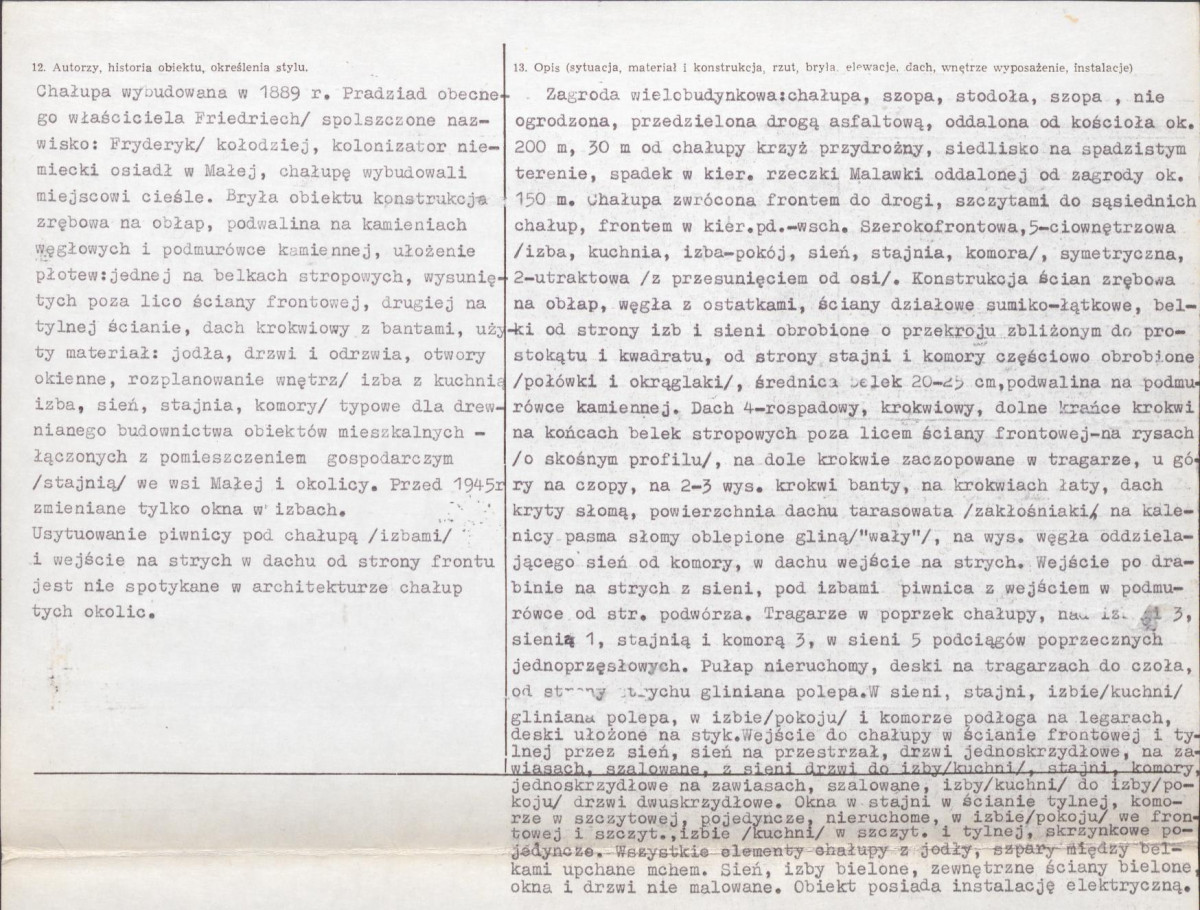 12. Autorzy, historia obiektu, określenia stylu.
Chałupa wybudowana w 1889 r. Pradziad obecne-
go właściciela Friedriech/ spolszczone naz-
wisko: Fryderyk/ kołodziej, kolonizator nie-
miecki osiadł w Małej, chałupę wybudowali
miejscowi cieśle. Bryła obiektu konstrukcja
zrębowa na obłap, podwalina na kamieniach
węgłowych i podmurówce kamiennej, ułożenie
płotew:jednej na belkach stropowych, wysunię-
tych poza lico ściany frontowej, drugiej na
tylnej ścianie, dach krokwiowy z bantami, uży-
ty materiał: jodła, drzwi i odrzwia, otwory
okienne, rozplanowanie wnętrz/ izba z kuchnią
izba, sień, stajnia, komory/ typowe dla drew-
nianego budownictwa obiektów mieszkalnych -
łączonych z pomieszczeniem gospodarczym
/stajnią/ we wsi Małej i okolicy. Przed 1945r
zmieniane tylko okna w izbach.
Usytuowanie piwnicy pod chałupą /izbami/
i wejście na strych w dachu od strony frontu
jest nie spotykane w architekturze chałup
tych okolic.
13. Opis (sytuacja, materiał i konstrukcja, rzut, bryła, elewacje, dach, wnętrze wyposażenie, instalacje)
Zagroda wielobudynkowa:chałupa, szopa, stodoła, szopa , nie
ogrodzona, przedzielona drogą asfaltową, oddalona od kościoła ok.
200 m, 30 m od chałupy krzyż przydrożny, siedlisko na spadzistym
terenie, spadek w kier. rzeczki Malawki oddalonej od zagrody ok.
150 m. Chałupa zwrócona frontem do drogi, szczytami do sąsiednich
chałup, frontem w kier.pd.-wsch. Szerokofrontowa,5-ciownętrzowa
/izba, kuchnia, izba-pokój, sień, stajnia, komora/, symetryczna,
2-utraktowa /z przesunięciem od osi/. Konstrukcja ścian zrębowa
na obłap, węgła z ostatkami, ściany działowe sumiko-łątkowe, bel-
ki od strony izb i sieni obrobione o przekroju zbliżonym do pro-
stokątu i kwadratu, od strony stajni i komory częściowo obrobione
/połówki i okrąglaki/, średnica belek 20-25 cm,podwalina na podmu-
rówce kamiennej. Dach 4-rospadowy, krokwiowy, dolne krańce krokwi
na końcach belek stropowych poza licem ściany frontowej-na rysach
/o skośnym profilu/, na dole krokwie zaczopowane w tragarze, u gó-
ry na czopy, na 2-3 wys. krokwi banty, na krokwiach łaty, dach
kryty słomą, powierzchnia dachu tarasowata /zakłośniaki/ na kale-
nicy pasma słomy oblepione gliną/"wały"/, na wys. węgła oddziela-
jącego sień od komory, w dachu wejście na strych. Wejście po dra-
binie na strych z sieni, pod izbami piwnica z wejściem w podmu-
rówce od str. podwórza. Tragarze w poprzek chałupy, nad 3,
sienią 1, stajnią i komorą 3, w sieni 5 podciągów poprzecznych
jednoprzęsłowych. Pułap nieruchomy, deski na tragarzach do czoła,
od strony strychu gliniana polepa.W sieni, stajni, izbie/kuchni/
gliniana polepa, w izbie/pokoju/ i komorze podłoga na legarach,
deski ułożone na styk.Wejście do chałupy w ścianie frontowej i ty-
lnej przez sień, sień na przestrzał, drzwi jednoskrzydłowe, na za-
wiasach, szalowane, z sieni drzwi do izby/kuchni/, stajni, komory,
jednoskrzydłowe na zawiasach, szalowane, izby/kuchni/ do izby/po-
koju/ drzwi dwuskrzydłowe. Okna w stajni w ścianie tylnej, komo-
rze w szczytowej, pojedyncze, nieruchome, w izbie/pokoju/ we fron-
towej i szczyt.,izbie /kuchni/ w szczyt. i tylnej, skrzynkowe po-
jedyncze. Wszystkie elementy chałupy z jodły, szpary między bel-
kami upchane mchem. Sień, izby bielone, zewnętrzne ściany bielone,
okna i drzwi nie malowane. Obiekt posiada instalację elektryczną.